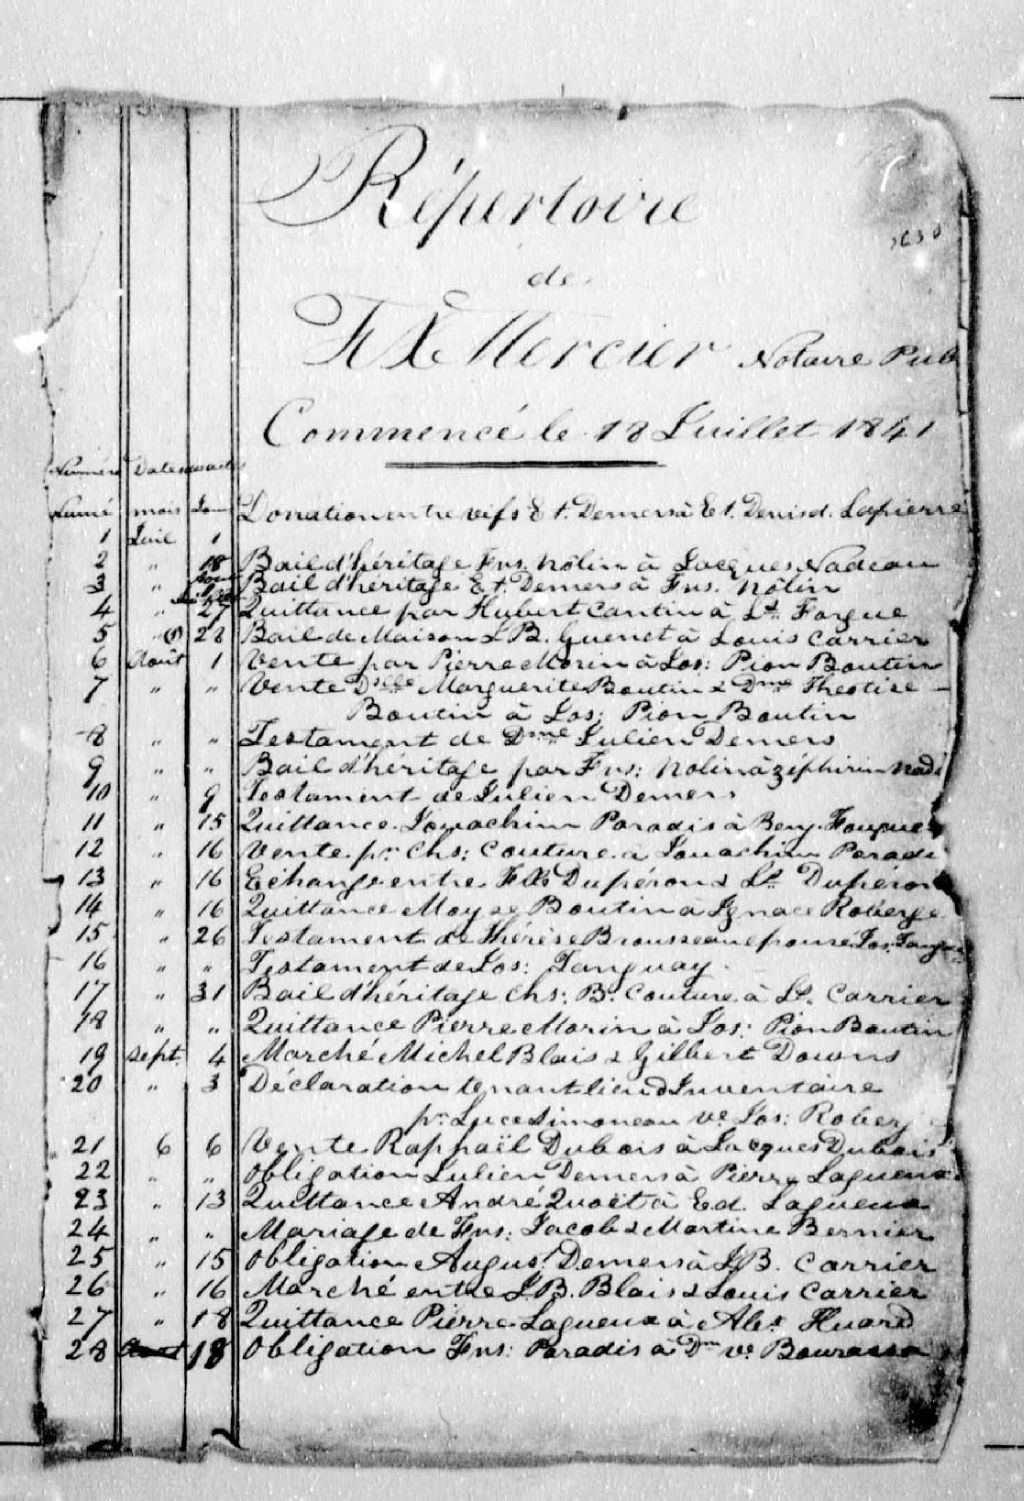 Répertoire
de
F X Mercier Notaire Pub
Commencé le 18 Juillet 1841
Numéro Dates des actes
Numé mois Jour Donation entre vifs Et. Demers à Et. Denis d. Lapierre
1 Juil 1
2 " 18 Bail d'héritage Frs. Nolin à Jacques Nadeau
3 " Bail d'héritage Et. Demers à Frs. Nolin
4 " 27 Quittance par Hubert Cantin à Ls. Forgue
5 " 28 Bail de Maison J B. Guenet à Louis Carrier
6 Août 1 Vente par Pierre Morin à Jos: Pion Boutin
7 " " Vente Dslle Marguerite Boutin & Dme Theotise
Boutin à Jos: Pion Boutin
8 " " Testament de Dme Julien Demers
9 " " Bail d'héritage par Frs: Nolin à Zéphirin Nad
10 " 9 Testament de Julien Demers
11 " 15 Quittance Jouachim Paradis à Benj. Fougue
12 " 16 Vente pr Chs: Couture à Jouachim Paradi
13 " 16 Echange entre Dupéron & Ls. Dupéron
14 " 16 Quittance Moyse Boutin à Ignace Roberge
15 " 26 Testament de Thérèse Brousseau épouse Jos. Tanguay
16 " " Testament de Jos: Tanguay.
17 " 31 Bail d'héritage Chs: B. Couture à Ls. Carrier
18 " " Quittance Pierre Morin à Jos: Pion Boutin
19 Sept. 4 Marché Michel Blais & Gilbert Downs
20 " 3 Déclaration tenant lieu d'Inventaire
pr. Luce Simoneau ve Jos: Roberg
21 6 6 Vente Raphaël Dubois à Jacques Dubois
22 " " Obligation Julien Demers à Pierre Lagueux
23 " 13 Quittance André Quoët à Ed. Lagueux
24 " " Mariage de Frs: Jacob & Martine Bernier
25 " 15 Obligation Augus. Demers à J B. Carrier
26 " 16 Marché entre J B. Blais & Louis Carrier
27 " 18 Quittance Pierre Lagueux à Alex Huard
28 18 Obligation Frs: Paradis à Dm ve Bourassa